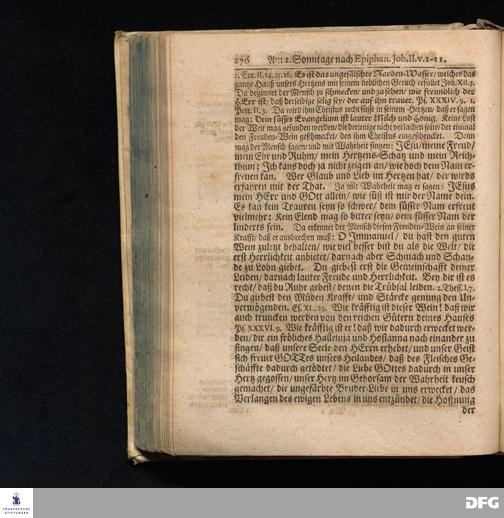 276 Am 2. Sonntage nach Epiphan. Joh. II. v. 1-11.
2. Cor. II. 14. 15. 16. Es ist das ungefälschte Narden-Wasser/ welches das
gantze Hauß unsers Hertzens mit seinem lieblichen Geruch erfüllet Joh. XII. 3.
Da beginnet der Mensch zu schmecken/ und zu sehen/ wie freundlich der
HErr ist/ daß derselbige selig sey/ der auf ihn trauet. Ps. XXXIV. 9. 1.
Petr. II. 3. Da wird ihm Christus recht süsse in seinem Hertzen/ daß er sagen
mag: Dein süsses Evangelium ist lauter Milch und Honig. Keine Lust
der Welt mag gefunden werden/ die derjenige nicht verlachen solte/ der einmal
den Freuden-Wein geschmecket/ den ihm Christus eingeschencket. Denn
mag der Mensch sagen/ und mit Wahrheit sagen: JEsu/ meine Freud/
mein Ehr und Ruhm/ mein Hertzens-Schatz und mein Reich-
thum: Ich kans doch ja nicht zeigen an/ wie hoch dein Nam er-
freuen kan. Wer Glaub und Lieb im Hertzen hat/ der wirds
erfahren mit der That. Ja mit Wahrheit mag er sagen: JEsus
mein HErr und GOtt allein/ wie süß ist mir der Name dein.
Es kan kein Trauren seyn so schwer/ dein süsser Nam erfreut
vielmehr: Kein Elend mag so bitter seyn/ dein süsser Nam der
linderts fein. Da erkennet der Mensch diesen Freuden-Wein an seiner
Krafft/ daß er ausbrechen muß: O Immanuel/ du hast den guten
Wein zuletzt behalten/ wie viel besser bist du als die Welt/ die
erst Herrlichkeit anbietet/ darnach aber Schmach und Schan-
de zu Lohn giebet. Du giebest erst die Gemeinschafft deiner
Leiden/ darnach lauter Freude und Herrlichkeit. Bey dir ist es
recht/ daß du Ruhe gebest/ denen die Trübsal leiden. 2. Thess. I. 7.
Du giebest den Müden Krafft/ und Stärcke genung den Un-
vermögenden. Es. XL. 29. Wie kräfftig ist dieser Wein! daß wir
auch truncken werden von den reichen Gütern deines Hauses
Ps. XXXVI. 9. Wie kräfftig ist er! daß wir dadurch erwecket wer-
den/ dir ein fröliches Halleluja und Hosianna nach einander zu
singen/ daß unsere Seele den HErrn erhebet/ und unser Geist
sich freuet GOTTes unsers Heilandes/ daß des Fleisches Ge-
schäffte dadurch getödtet/ die Liebe GOttes dadurch in unser
Hertz gegossen/ unser Hertz im Gehorsam der Wahrheit keusch
gemachet/ die ungefärbte Bruder-Liebe in uns erwecket/ das
Verlangen des ewigen Lebens in uns entzündet/ die Hoffnung
der
FRANCKESCHE
STIFTUNGEN
DFG